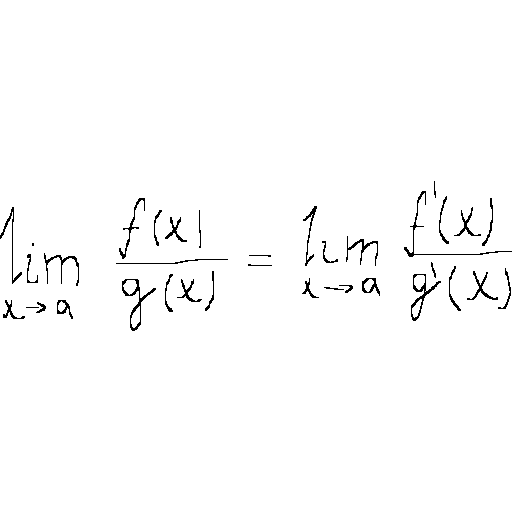 \lim_{x \to a} \frac{f(x)}{g(x)} = \lim_{x \to a} \frac{f'(x)}{g'(x)}